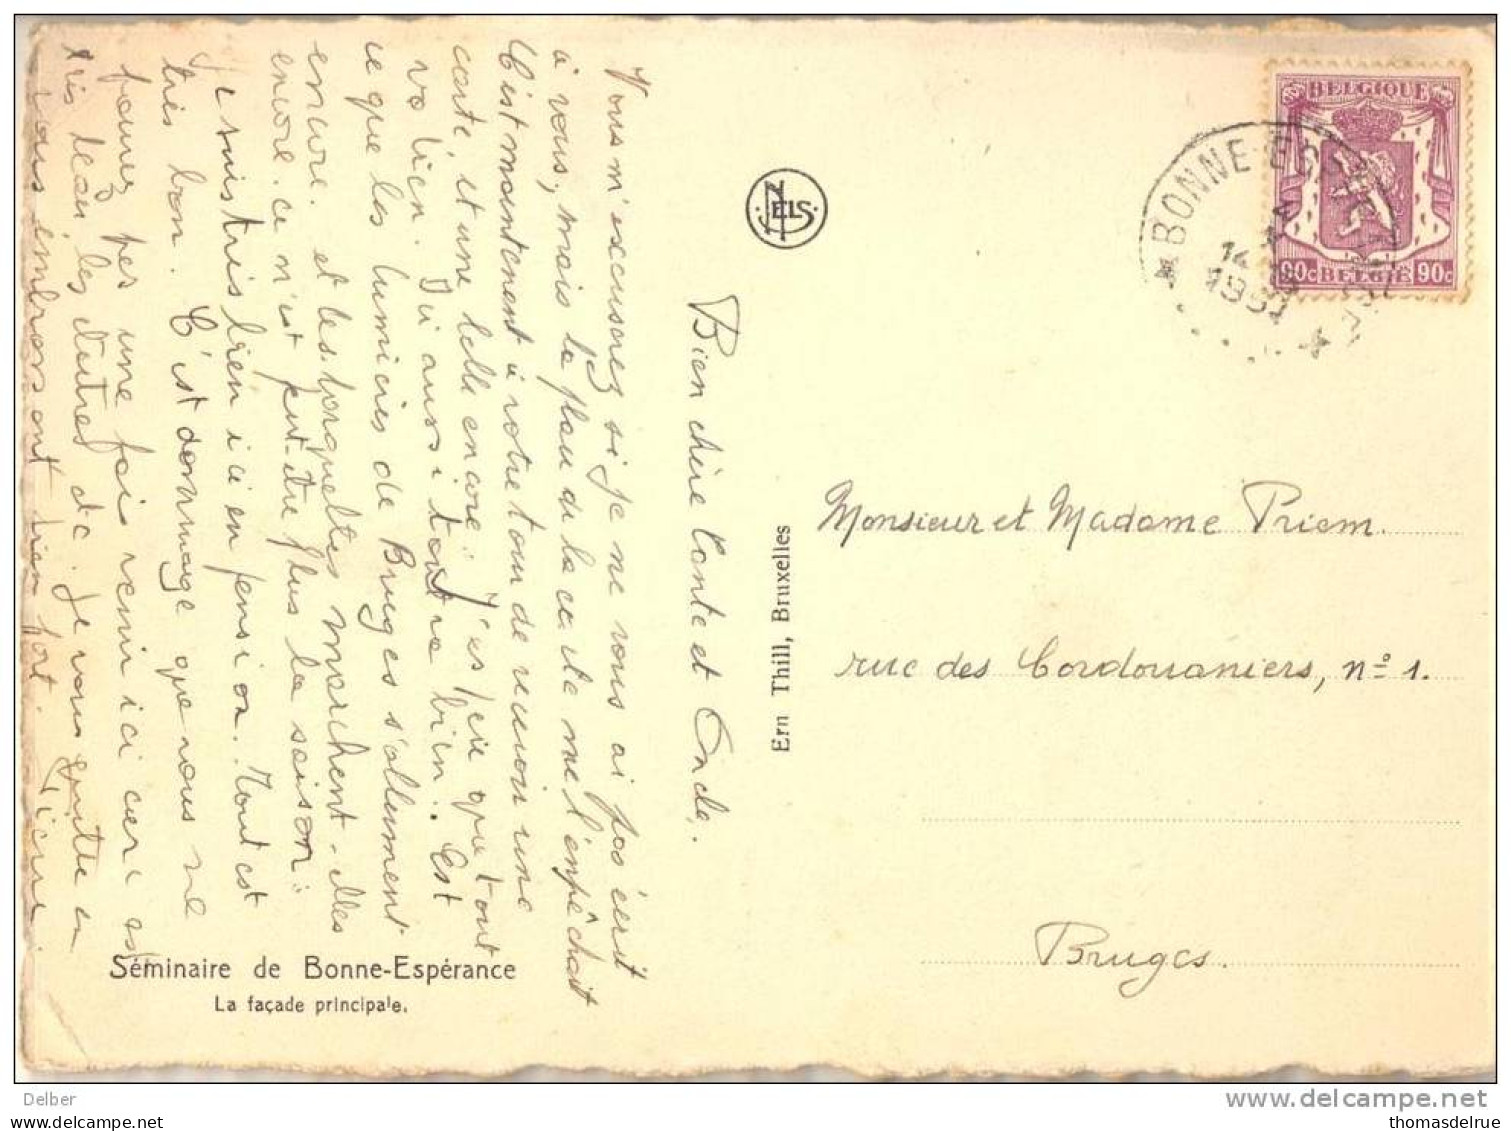 BELGIQUE
90c BELGIË 90c
BONNE-ESPÉRANCE
14
195
NELS
Ern Thill, Bruxelles
Monsieur et Madame Priem.
rue des Cordouaniers, nº 1.
Bruges.
Bien chère Tante et Oncle.
Vous m'excuserez si je ne vous ai pas écrit
à vous, mais la place de la carte me l'empêchait
C'est maintenant à votre tour de recevoir une
carte, et une belle encore: J'espère que tout
va bien. Ici aussi tout va bien. Est
ce que les lumières de Bruges s'allument
encore. et les barquettes marchent-elles
encore. ce n'est peut-être plus la saison:
Je suis très bien ici en pension. Tout est
très bon. C'est dommage que nous ne
pouvez pas une fois venir ici car c'est
très beau les etc. Je vous quitte en
vous embrassant bien fort. Pierre.
Séminaire de Bonne-Espérance
La façade principale.
Delber
www.delcampe.net
thomasdelrue